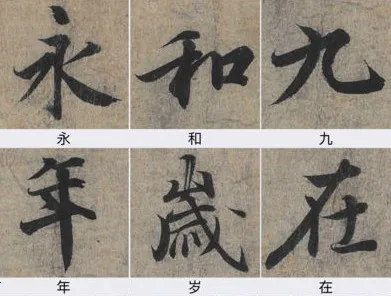 永 和 九
永 和 九
年 歲 在
年 岁 在